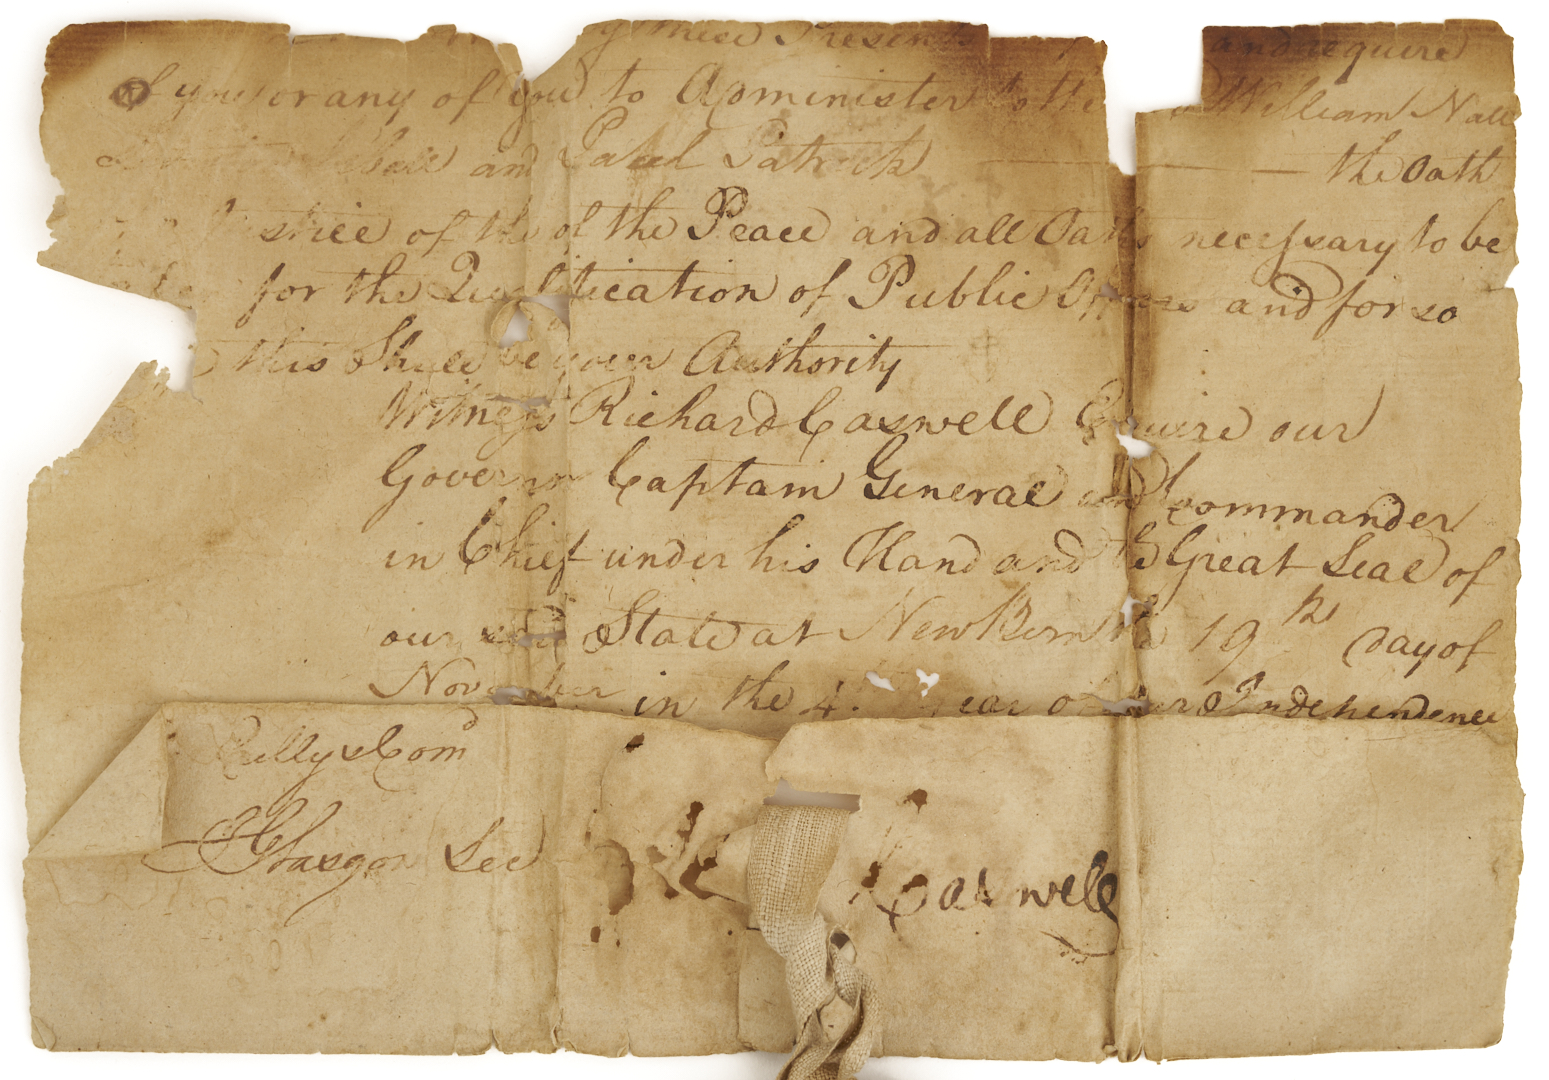 by these Presents and require
of you or any of you to Administer to the said William Nall
Bell and Patrick the Oath
of the of the Peace and all Oaths necessary to be
for the Qualification of Public Offices and for so
this Shall be your Authority
Witness Richard Caswell Esquire our
Governor Captain General and Commander
in Chief under his Hand and the Great Seal of
our said State at NewBern the 19th Day of
November in the 4. Year of our Independence
By his Com
J Glasgow Sec
R Caswell